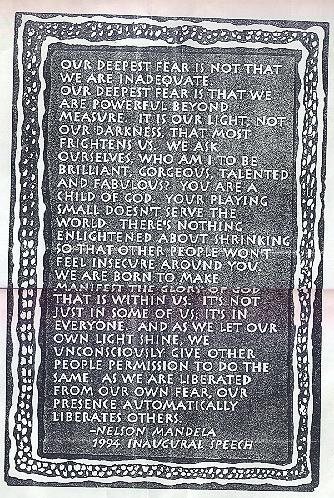 OUR DEEPEST FEAR IS NOT THAT
WE ARE INADEQUATE.
OUR DEEPEST FEAR IS THAT WE
ARE POWERFUL BEYOND
MEASURE. IT IS OUR LIGHT, NOT
OUR DARKNESS, THAT MOST
FRIGHTENS US. WE ASK
OURSELVES, WHO AM I TO BE
BRILLIANT, GORGEOUS, TALENTED
AND FABULOUS? YOU ARE A
CHILD OF GOD. YOUR PLAYING
SMALL DOESN'T SERVE THE
WORLD. THERE'S NOTHING
ENLIGHTENED ABOUT SHRINKING
SO THAT OTHER PEOPLE WON'T
FEEL INSECURE AROUND YOU.
WE ARE BORN TO MAKE
MANIFEST THE GLORY OF GOD
THAT IS WITHIN US. IT'S NOT
JUST IN SOME OF US; IT'S IN
EVERYONE. AND AS WE LET OUR
OWN LIGHT SHINE, WE
UNCONSCIOUSLY GIVE OTHER
PEOPLE PERMISSION TO DO THE
SAME. AS WE ARE LIBERATED
FROM OUR OWN FEAR, OUR
PRESENCE AUTOMATICALLY
LIBERATES OTHERS.
-NELSON MANDELA
1994 INAUGURAL SPEECH